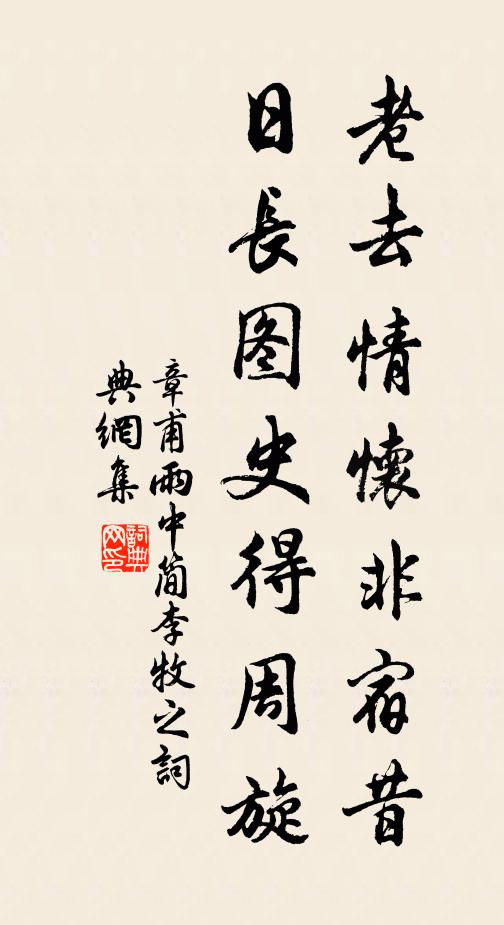 老去情懷非宿昔
日長图史得周旋
章甫雨中简李牧之詞
典網集
詞典
网印